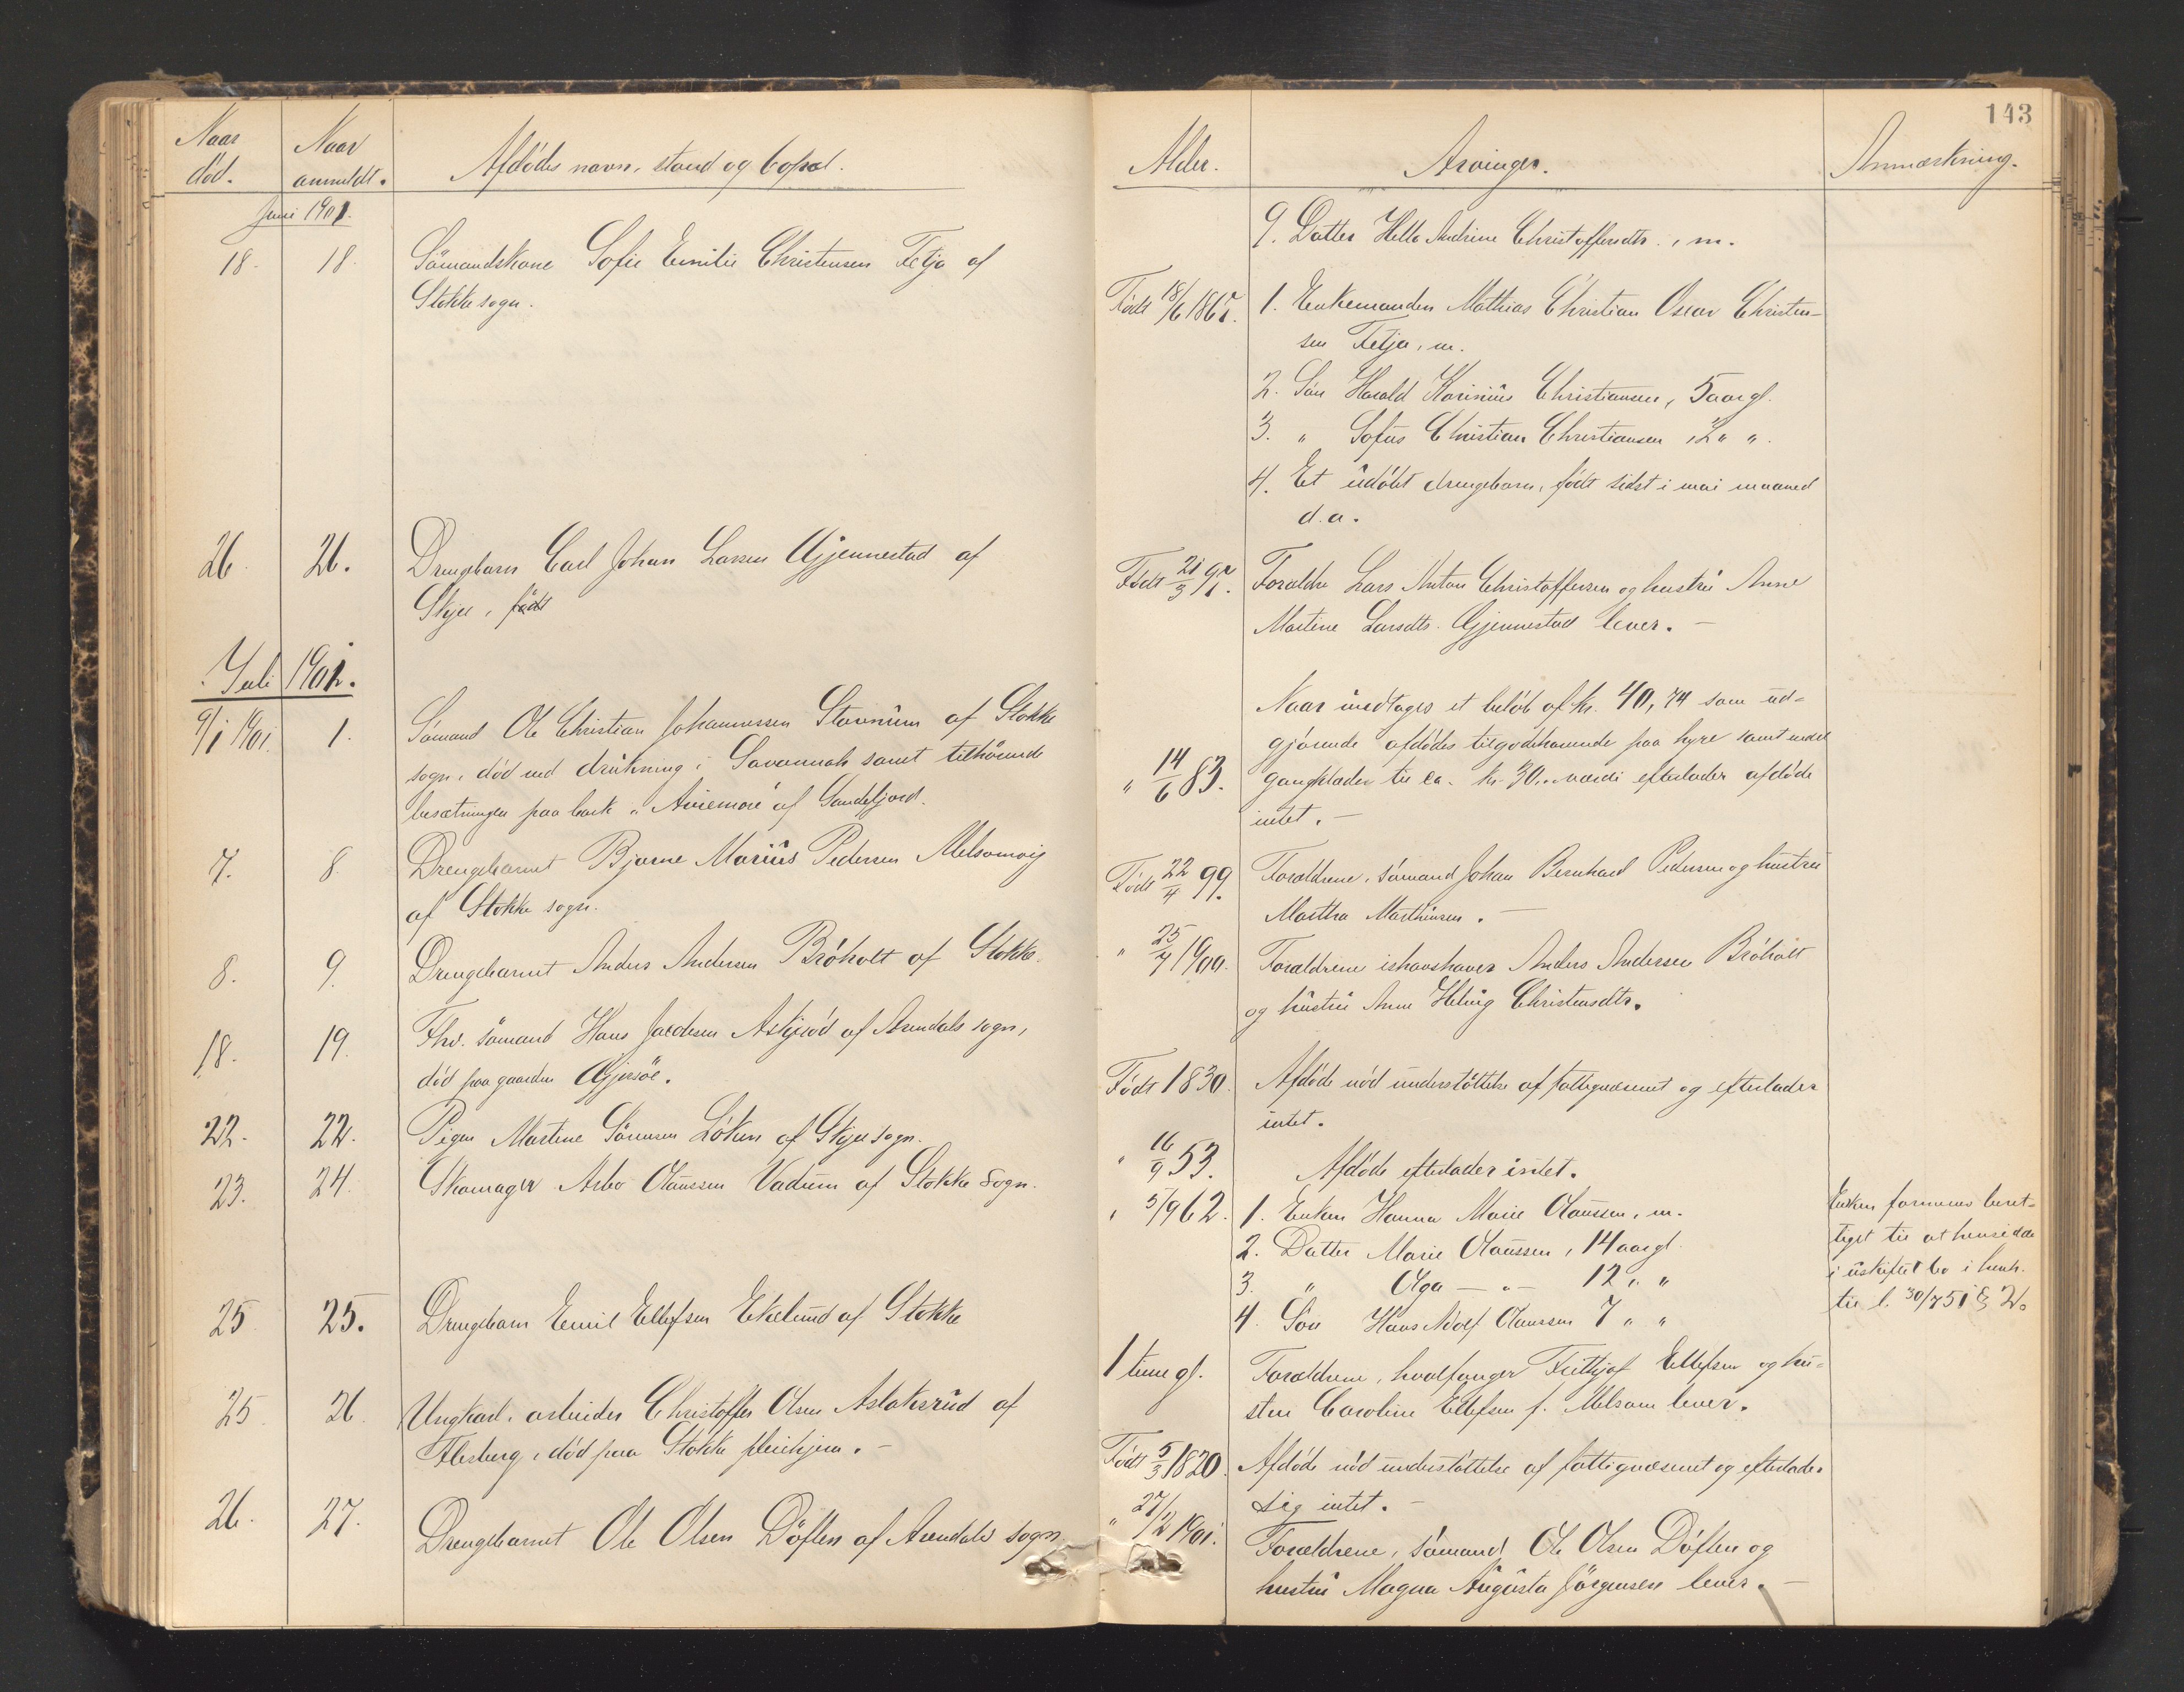 143
Naar
død.
Naar
anmeldt.
Afdødes navn, stand og bopæl.
Juni 1901.
18. 18. Sømandskone Sofie Emilie Christensen Fetja af
Stokke sogn.
26. 26. Drengebarn Carl Johan Larsen Gjennestad af
Skjee, født
Juli 1901.
9/1 1901. 1. Sømand Ole Christian Johannessen Stavnum af Stokke
sogn, død ved drukning i Savannah samt tilhørende
besætningen paa bark "Aviemore" af Sandefjord.
7. 8. Drengebarnet Bjarne Marius Pedersen Melsomvig
af Stokke sogn.
8. 9. Drengebarnet Anders Andersen Brøholt af Stokke.
18. 19. Fhv. sømand Hans Jacobsen Askjerød af Arendals sogn,
død paa gaarden Gjersøe.
22. 22. Pigen Martine Sørensen Løken af Skjee sogn.
23. 24. Skomager Asbo Claussen Vadum af Stokke sogn.
25 25. Drengebarn Emil Ellefsen Ekelund af Stokke
25 26. Ungkarl, arbeider Christoffer Olsen Aslaksrud af
Flesberg, død paa Stokke pleiehjem.
26. 27. Drengebarnet Ole Olsen Døflen af Arendals sogn
Alder. Arvinger. Anmærkning.
9. Datter Helle Andrine Christoffersdtr., m.
Født 18/6 1867. 1. Enkemanden Mathias Christian Oscar Christen-
sen Fetja, m.
2. Søn Harald Karinius Christiansen, 5 aar gl.
3. " Sofus Christian Christiansen, 2 " ".
4. Et udøbt drengebarn, født sidst i mai maaned
d.a.
Født 21/3 97. Forældre Lars Anton Christoffersen og hustru Anne
Martine Larsdtr. Gjennestad lever. —
Naar undtages et beløb af kr. 40,74 som ud-
gjørende afdødes tilgodehavende paa hyre samt endel
" 14/6 83. gangklæder til ca. kr. 30,, værdi efterlader afdøde
intet. —
Født 22/4 99. Forældrene, sømand Johan Bernhard Pedersen og hustru
Martha Marthinsen. —
" 25/4 1900. Forældrene ishavsfarer Anders Andersen Brøholt
og hustru Anne Helvig Christensdtr.
Født 1830. Afdøde nød understøttelse af fattigvæsenet og efterlader
intet.
" 16/9 53. Afdøde efterlader intet.
" 5/9 62. 1. Enken Hanna Marie Claussen, m.
2. Datter Marie Claussen, 14 aar gl.
3. " Olga — " — 12 " "
4. Søn Hans Adolf Claussen 7 " "
Enken formenes beret-
tiget til at hensidde
i uskiftet bo i henh.
til l. 30/7 51 § 2.
1 time gl. Forældrene, hvalfanger Frithjof Ellefsen og hu-
stru Caroline Ellefsen f. Melsom lever.
Født 5/3 1820. Afdøde nød understøttelse af fattigvæsenet og efterlader
sig intet. —
" 27/2 1901. Forældrene, sømand Ole Olsen Døflen og
hustru Magna Augusta Jørgensen lever. —